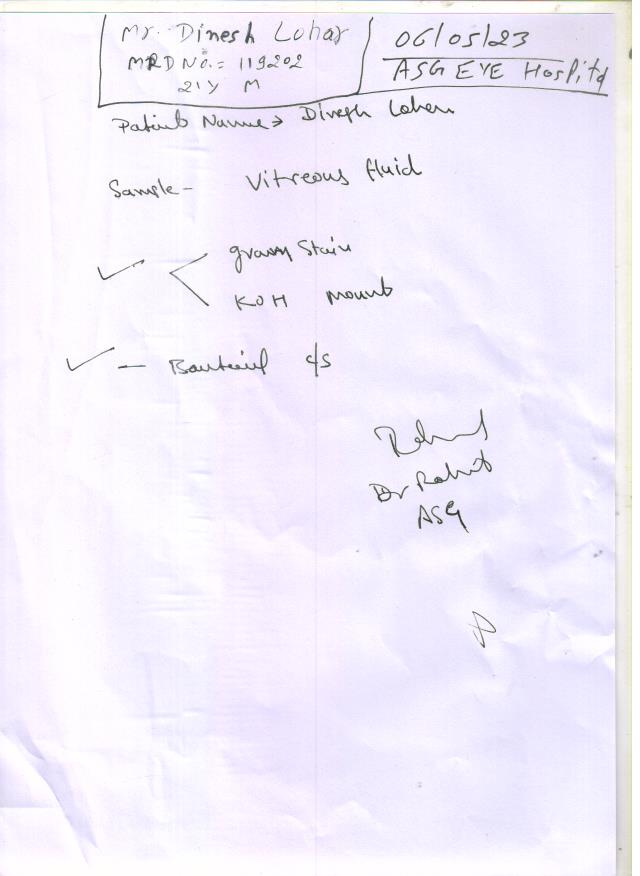 Mr. Dinesh Lohar
MRD No. = 119202
21Y M
06/05/23
ASG EYE Hospital
Patient Name → Dinesh Lohar
Sample - Vitreous fluid
gram Stain
KOH mount
— Bacterial c/s
Dr Rohit
ASG